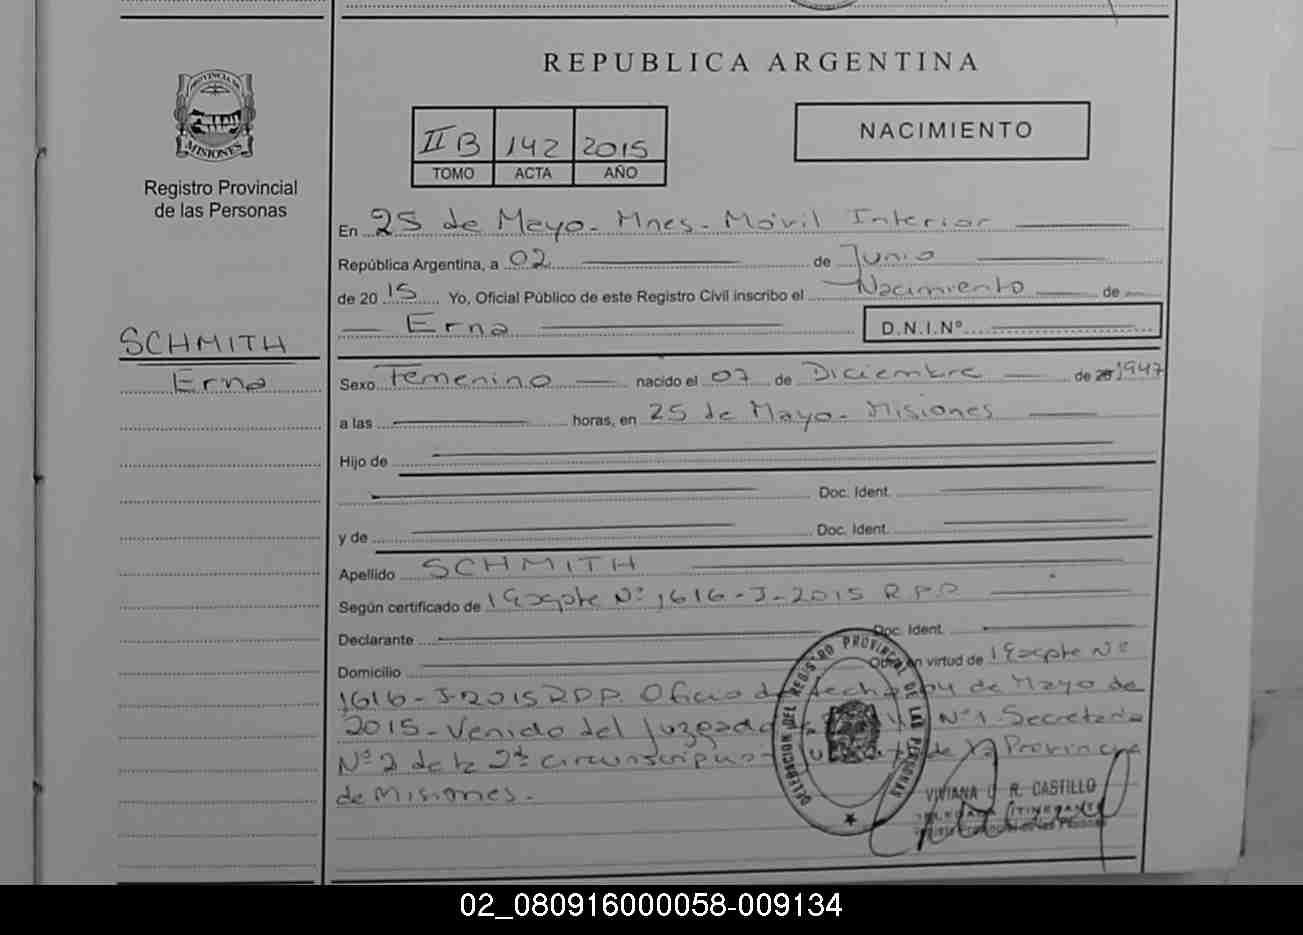 REPUBLICA ARGENTINA
PROVINCIA DE
MISIONES
Registro Provincial
de las Personas
II B 142 2015
TOMO ACTA AÑO
NACIMIENTO
En 25 de Mayo - Mnes - Móvil Interior
República Argentina, a 02 de Junio
de 2015 Yo, Oficial Público de este Registro Civil inscribo el Nacimiento de
Erna
D.N.I.Nº
SCHMITH
Erna
Sexo Femenino nacido el 07 de Diciembre de 1947
a las horas, en 25 de Mayo - Misiones
Hijo de
Doc. Ident.
y de Doc. Ident.
Apellido SCHMITH
Según certificado de Nº 1616-J-2015 R.P.P
Declarante Doc. Ident.
Domicilio Obra en virtud de Nº
1616-J-2015 R.P.P. Oficio de fecha 04 de Mayo de
2015 - Venido del Juzgado Nº 1 Secretaria
Nº 2 de la 2da circunscripción de la Provincia
de Misiones.-
DELEGACION DEL REGISTRO PROVINCIAL DE LAS PERSONAS
VIVIANA R. CASTILLO
DELEGADA ITINERANTE
Registro Provincial de las Personas
02_080916000058-009134